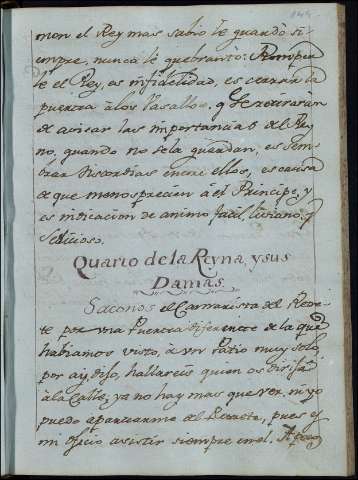 mon el Rey mas sabio le guardo si-
empre, nunca le quebranto: Romper
le el Rey, es infidelidad, es cerrar la
puerta à los Vasallos, q̃ se retiraran
de avisar las importancias del Rey
no, quando no se la guardan, es sem-
brar discordias entre ellos, es causa
de que menosprecien à el Principe, y
es indicacion de animo facil, liviano, y
sedicioso.
Quarto de la Reyna, y sus
Damas.
Saconos el Camarista del Retre-
te por una Puerta diferente de la que
habiamos visto, à un Patio muy solo,
por ay, dijo, hallareis quien os dirija
à la Calle, ya no hay mas que ver, ni yo
puedo apartarme del Retrete, pues es
mi oficio asistir siempre en el.